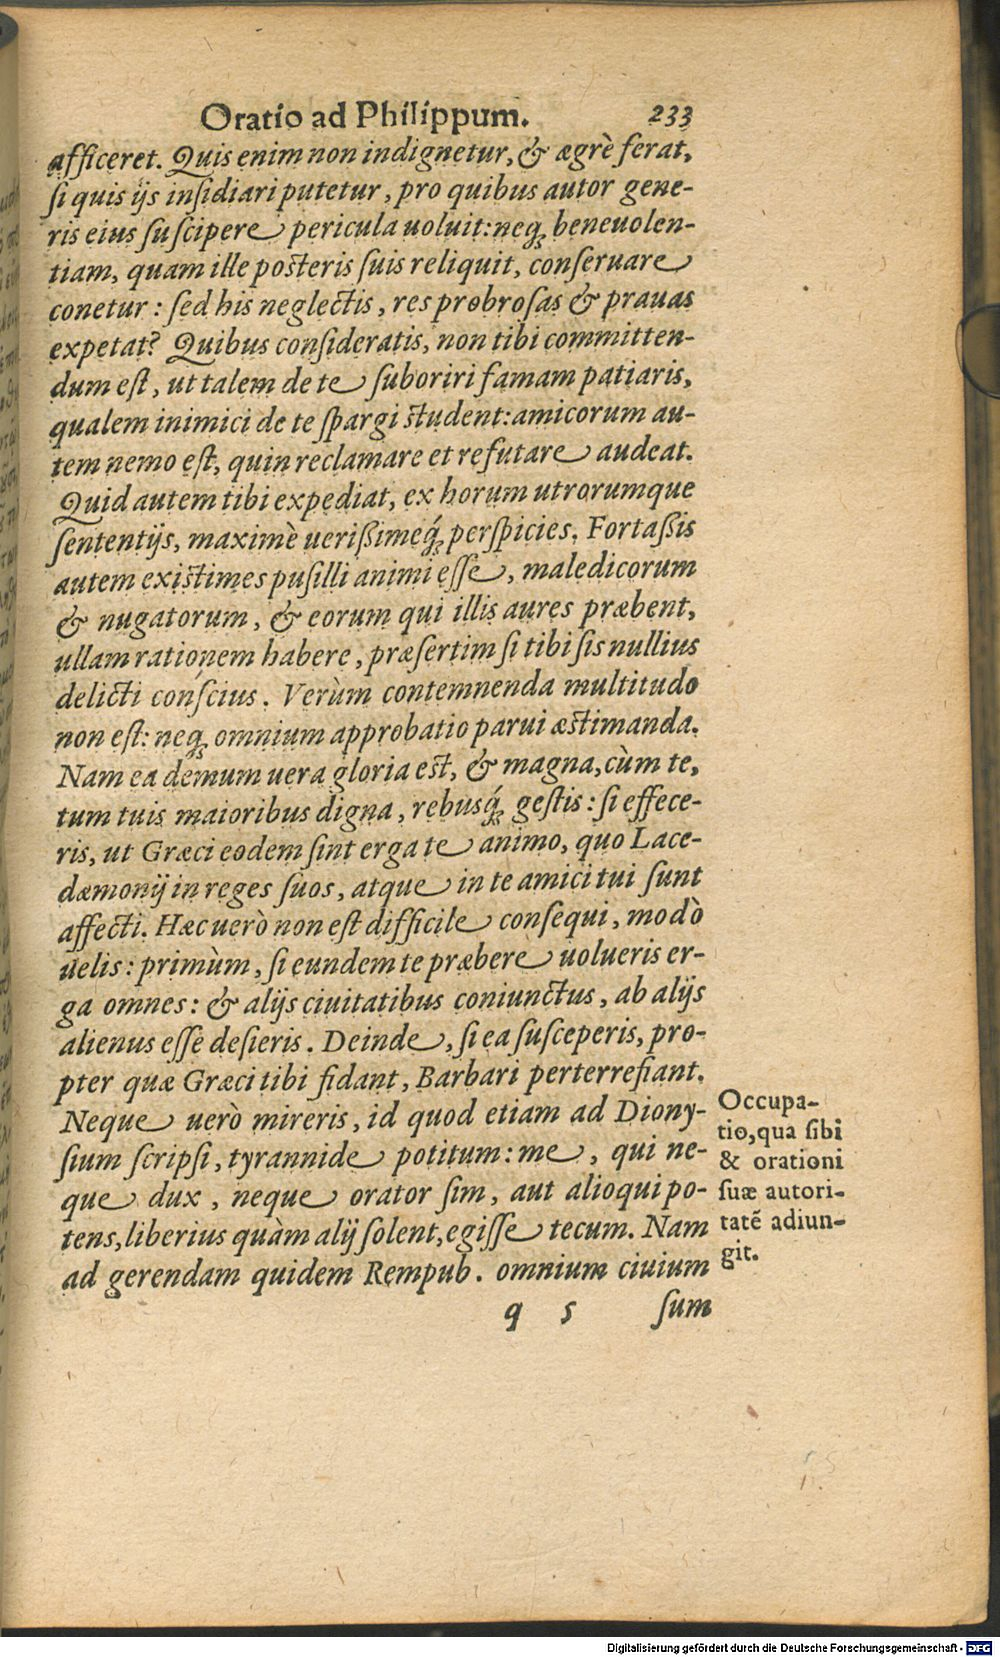 Oratio ad Philippum. 233
afficeret. Quis enim non indignetur, & ægrè ferat,
si quis ijs insidiari putetur, pro quibus autor gene-
ris eius suscipere pericula uoluit: neq; beneuolen-
tiam, quam ille posteris suis reliquit, conseruare
conetur: sed his neglectis, res probrosas & prauas
expetat? Quibus consideratis, non tibi committen-
dum est, ut talem de te suboriri famam patiaris,
qualem inimici de te spargi student: amicorum au-
tem nemo est, quin reclamare et refutare audeat.
Quid autem tibi expediat, ex horum utrorumque
sententijs, maximè uerißimeq́; perspicies. Fortaßis
autem existimes pusilli animi esse, maledicorum
& nugatorum, & eorum qui illis aures præbent,
ullam rationem habere, præsertim si tibi sis nullius
delicti conscius. Verùm contemnenda multitudo
non est: neq; omnium approbatio parui æstimanda.
Nam ea demum uera gloria est, & magna, cùm te,
tum tuis maioribus digna, rebusq́; gestis: si effece-
ris, ut Græci eodem sint erga te animo, quo Lace-
dæmonij in reges suos, atque in te amici tui sunt
affecti. Hæc uerò non est difficile consequi, modò
uelis: primùm, si eundem te præbere uolueris er-
ga omnes: & alijs ciuitatibus coniunctus, ab alijs
alienus esse desieris. Deinde, si ea susceperis, pro-
pter quæ Græci tibi fidant, Barbari perterrefiant.
Neque uerò mireris, id quod etiam ad Diony-
sium scripsi, tyrannide potitum: me, qui ne-
que dux, neque orator sim, aut alioqui po-
tens, liberius quàm alij solent, egisse tecum. Nam
ad gerendam quidem Rempub. omnium ciuium
q 5 sum
Occupa-
tio, qua sibi
& orationi
suæ autori-
tatē adiun-
git.
Digitalisierung gefördert durch die Deutsche Forschungsgemeinschaft - DFG